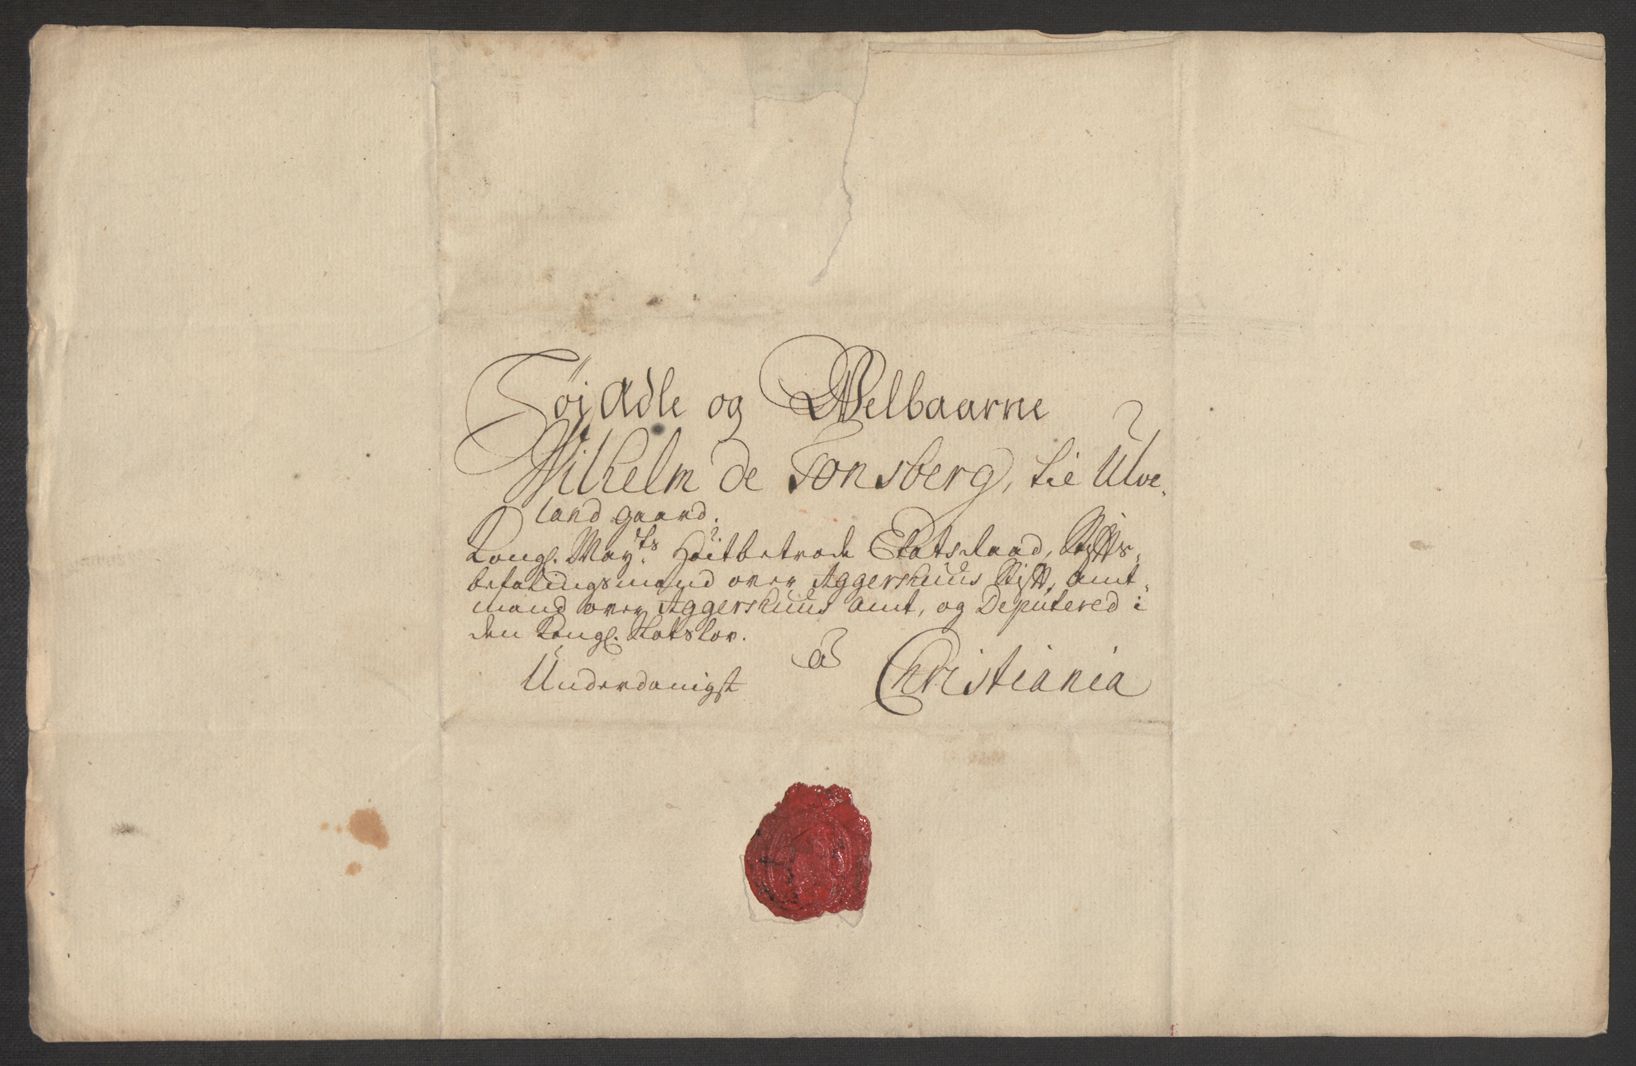 HøjAdle og Welbaarne
Wilhelm de Tonsberg, til Ulve-
land gaard.
Kongl. Mayts. Høitbetrode Etatsraad, Stifts-
befalingsmand over Aggershuus Stift, Amt-
mand over Aggershuus Amt, og Deputered i
den Kongl. Slotslov.
a Christiania
Underdanigst